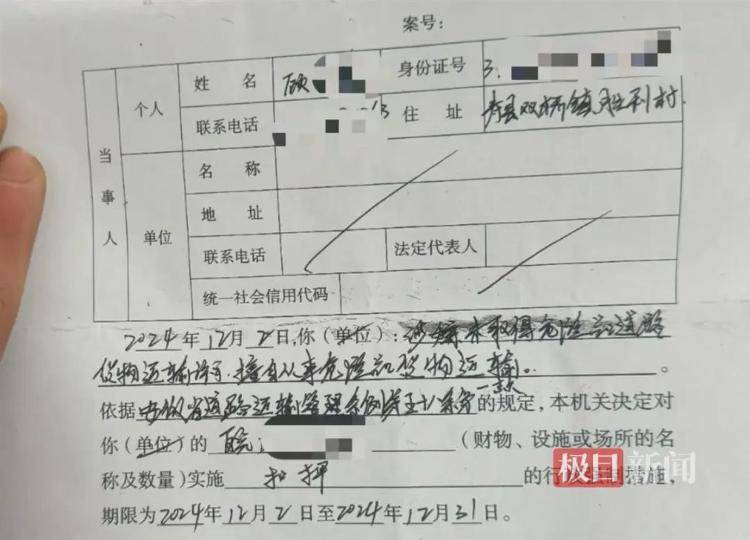 案号：
当事人
个人
姓 名 顾
身份证号 3.
联系电话
住 址 寿县双桥镇胜利村
单位
名 称
地 址
联系电话 法定代表人
统一社会信用代码
2024年12月2日,你（单位）：涉嫌未取得危险品道路
货物运输许可,擅自从事危险品货物运输。
依据安徽省道路运输管理条例第五十八条第一款的规定，本机关决定对
你（单位）的 皖 （财物、设施或场所的名
称及数量）实施 扣押 的行政强制措施，
期限为2024年12月2日至2024年12月31日。
极目新闻